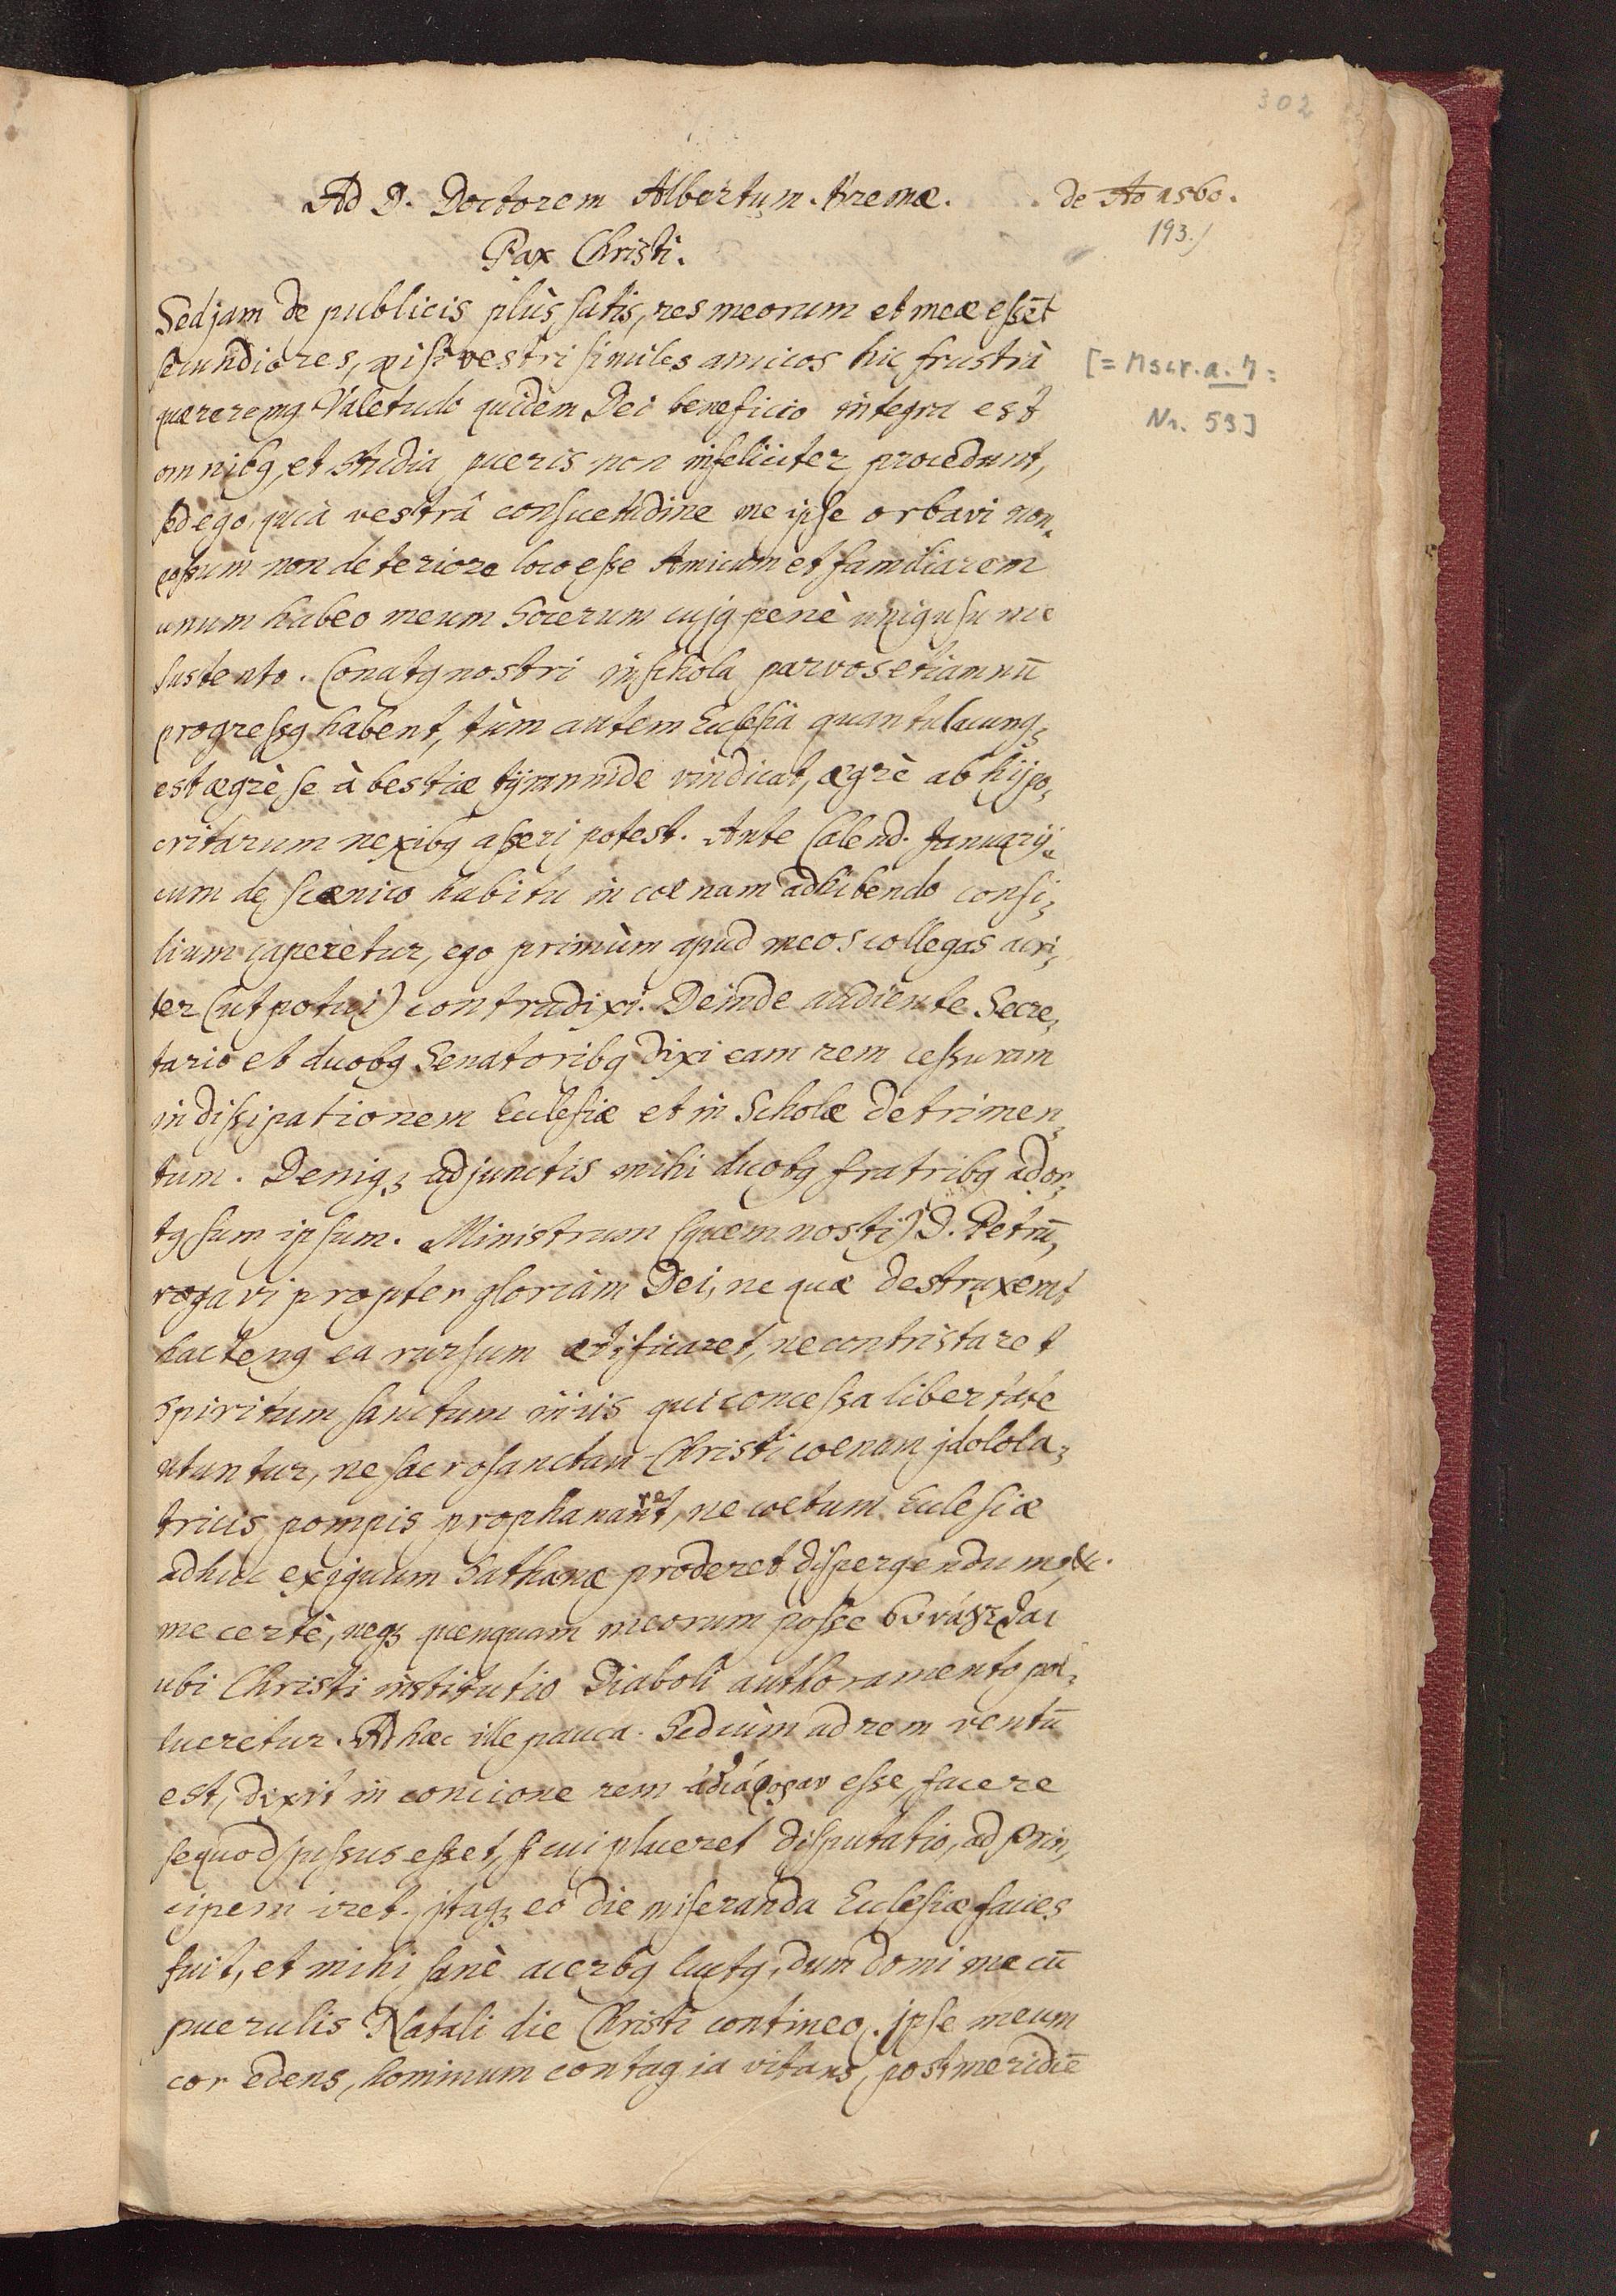 302
Ad D. Doctorem Albertum. Bremæ. de Ao 1560.
193.)
Pax Christi.
Sed jam de publicis plùs satis, res meorum et meæ essēt
secundiores, nisi vestri similes amicos hic frustrà
[= Mscr. a. 7:
quæreremꝰ. Valetudo quidem Dei beneficio integra est
Nr. 59]
omnibꝰ, et studia pueris non infeliciter procedunt,
sed ego, quia vestrâ consuetudine me ipse orbavi non
possum non deteriore loco esse Amicum et familiarem
unum habeo meum Socerum cujꝰ penè unius usu me
sustento. Conatꝰ nostri in schola parvos etiamnū
progressꝰ habent, tùm autem Ecclesia quantulacunqꝫ
est ægrè se à bestiæ tÿrannide vindicat, ægrè ab hÿpo,
critarum nexibꝰ asseri potest. Ante Calend. Januarij,
cum de scænico habitu in coenam adhibendo consi,
lium caperetur, ego primùm apud meos collegas acri,
ter (ut potui) contradixi. Deinde audiente Secre,
tario et duobꝰ Senatoribꝰ dixi eam rem cessuram
in dissipationem Ecclesiæ et in Scholæ detrimen,
tum. Deniqꝫ adjunctis mihi duobꝰ fratribꝰ ador,
tꝰ sum ipsum. Ministrum (quem nosti) D. Petrū,
rogavi propter gloriam Dei, ne quæ destruxerat
hactenꝰ ea rursum ædificaret, ne contristaret
spiritum sanctum in iis qui concessa libertate
utuntur, ne sacrosanctam Christi coenam jdolola,
tricis pompis prophanaret, ne coetum Ecclesiæ
adhuc exiguum Sathanæ proderet dispergendum, &c.
me certè, neqꝫ quenquam meorum posse
ubi Christi institutio Diaboli authoramento pol,
lueretur. Ad hæc ille pauca. Sed cùm ad rem ventū
est, dixit in concione rem ἀδιάφορον esse, facere
se quod jussus esset, si cui placeret disputatio, ad Prin,
cipem iret. jtaqꝫ eo die miseranda Ecclesiæ facies
fuit, et mihi sanè acerbꝰ luctꝰ, dum domi me cū
puerulis Natali die Christi contineo, jpse meum
cor edens, hominum contagia vitans, post meridiē